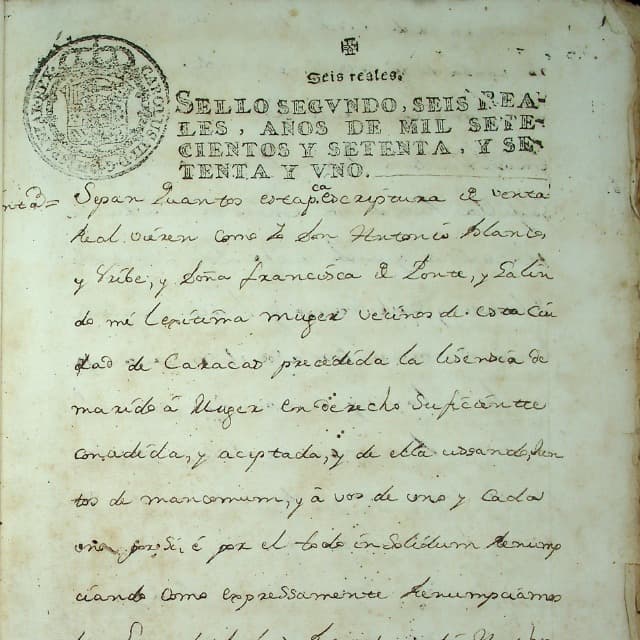 Seis reales.
SELLO SEGVNDO, SEIS REA-
LES, AÑOS DE MIL SETE-
CIENTOS Y SETENTA, Y SE-
TENTA Y VNO.
Sepan Quantos esta pca escriptura de venta
Real vieren como Yo Don Antonio Blanco
y Vribe, y Doña Francisca de Ponte, y Galin
do mi lexitima muger vecinos de esta Ciu
dad de Caracas precedida la lisensia de
marido á Muger en derecho suficiente
consedida, y aceptada, y de ella ussando, Jun
tos de mancomum, y á vos de uno y Cada
uno por si é por el todo insolidum Renump
ciando como expressamente Renumpciamos